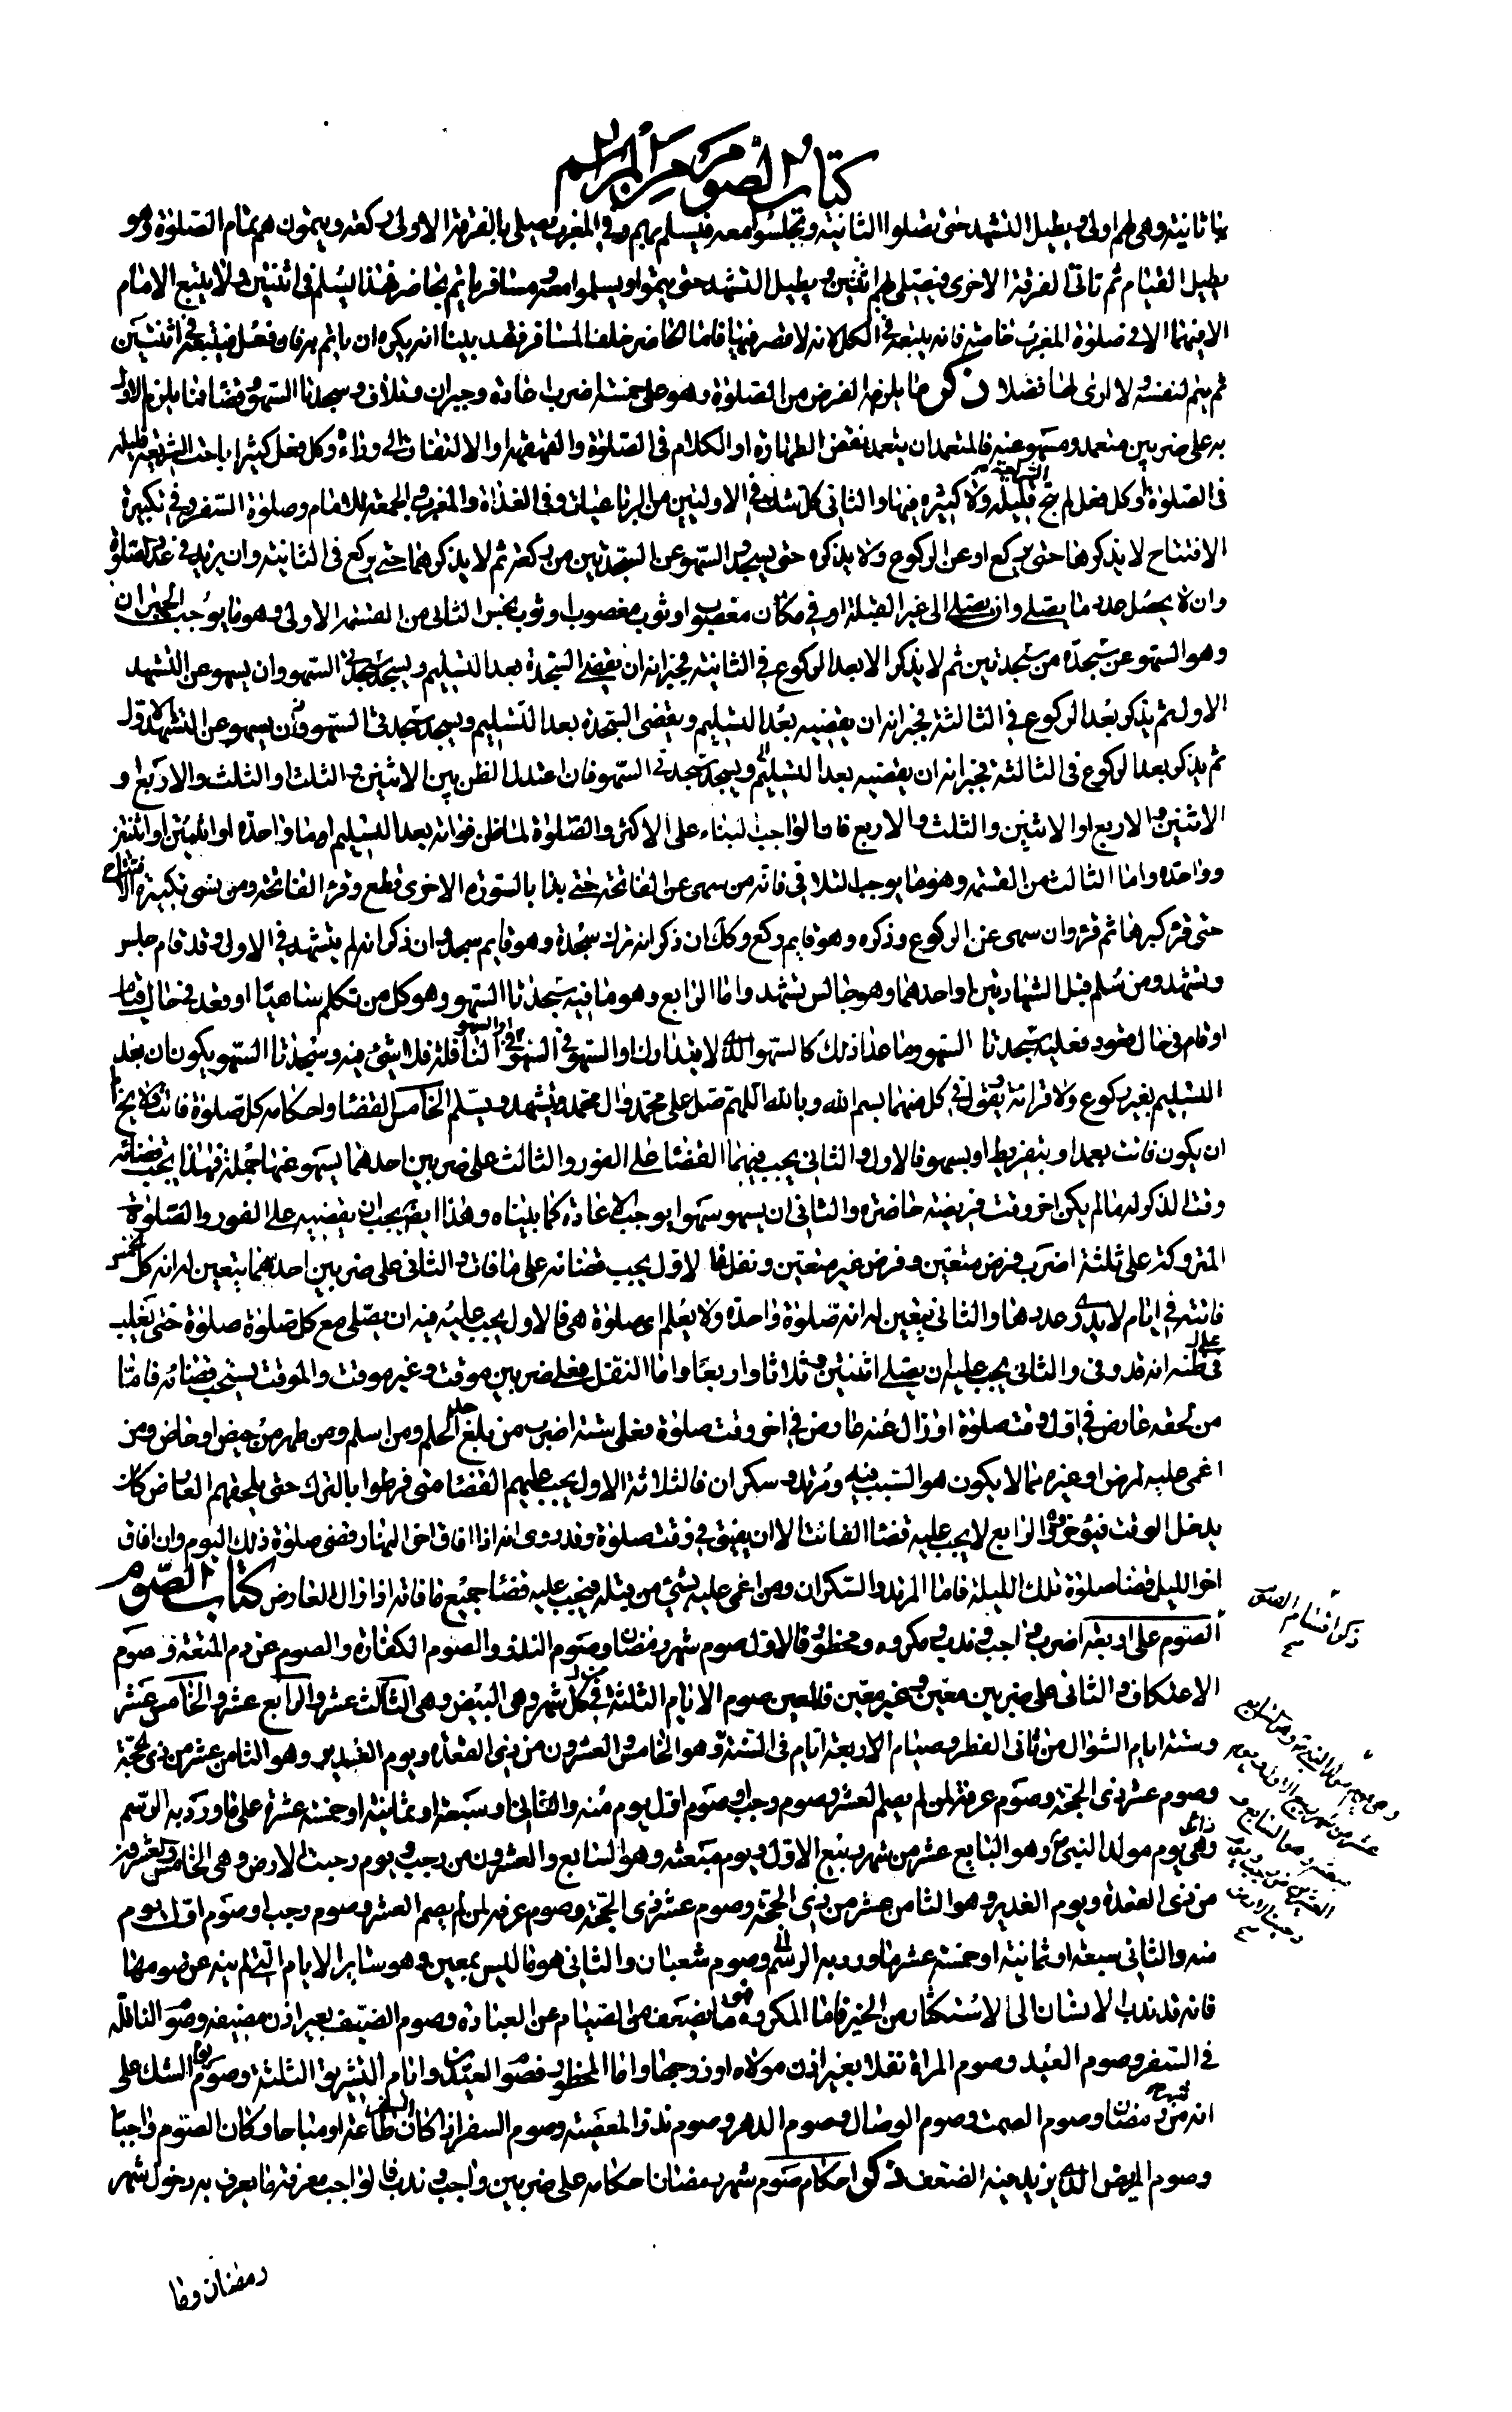 كتاب الصوم من المراسم
نا ثانية وهي لهم اولى ويطيل التشهد حتى يصلوا الثانية ويجلسوا معه فيسلم بهم وفي المغرب يصلي بالفرقة الاولى ركعة ويتمون هم تمام الصلوة وهو
يطيل القيام ثم تاتي الفرقة الاخرى فيصلي بهم اثنتين ويطيل التشهد حتى يتموا ويسلموا معه ومسافر ياتم بحاضر فهذا يسلم في اثنتين ولا يتبع الامام
الا فيهما الا في صلوة المغرب خاصة فانه يتبعه في الكل لانه لا قصر فيها فاما الحاضر خلف المسافر فقد بينا انه يكره ان ياتم به فان فعل فيتبعه في اثنتين
ثم يتم لنفسه ولا ارى لها فضلا ذكر ما يلزم المفرض من الصلوة وهو على خمسة اضرب اعادة وجبران وتلاف وسجدتا السهو وقضا فما يلزم الاول
به على ضربين متعمد ومسهو عنه فالمتعمد ان يتعمد نقض الطهارة او الكلام في الصلوة والقهقهة او الالتفات الى وراء وكل فعل كثير اباحت الشريعة قليله
في الصلوة وكل فعل لم تبح الشريعة قليله ولا كثيره فيها والثاني كل شك في الاوليين من الرباعيات وفي الغداة والمغرب والجمعة للامام وصلوة السفر وفي تكبيرة
الافتتاح لا يذكرها حتى يركع او عن الركوع ولا يذكره حتى يسجد والسهو عن السجدتين من ركعة ثم لا يذكرهما حتى يركع في الثانية وان يزيد في عدد الصلوة
وان لا يحصل عدد ما يصلي وان يصلي الى غير القبلة او في مكان مغصوب او ثوب مغصوب او ثوب نجس الثاني من القسمة الاولى وهو ما يوجب الجبران
وهو السهو عن سجدة من سجدتين ثم لا يذكر الا بعد الركوع في الثانية فجبرانه ان يقضي السجدة بعد التسليم ويسجد سجدتي السهو وان يسهو عن التشهد
الاول ثم يذكر بعد الركوع في الثالثة فجبرانه ان يقضيه بعد التسليم ويقضى السجدة بعد التسليم ويسجد سجدتي السهو وان يسهو عن التشهد الاول
ثم يذكر بعد الركوع في الثالثة فجبرانه ان يقضيه بعد التسليم ويسجد سجدتي السهو فان اعتدل الظن بين الاثنين والثلث او الثلث والاربع او
الاثنين والاربع او الاثنين والثلث والاربع فالواجب البناء على الاكثر والصلوة لما ظن فواته بعد التسليم اما واحدة او اثنتين او اثنتين
وواحدة واما الثالث من القسمة وهو ما يوجب التلافي فانه من سهى عن الفاتحة حتى بدا بالسورة الاخرى قطع وقرء الفاتحة ومن نسى تكبيرة الافتتاح
حتى قرء كبرها ثم قرء وان سهى عن الركوع وذكره وهو قايم ركع وكك ان ذكر انه ترك سجدة وهو قايم سجد وان ذكر انه لم يتشهد في الاولى وقد قام جلس
وتشهد ومن سلم قبل الشهادتين او احدهما وهو جالس تشهد واما الرابع وهو ما فيه سجدتا السهو وهو كل من تكلم ساهيا او قعد في حال قيام
او قام في حال قعود فعليه سجدتا السهو وما عدا ذلك كالسهو الذي لا يتدارك او السهو في السهو او السهو في النافلة فلا شئ فيه وسجدتا السهو يكونان بعد
التسليم بغير ركوع ولا قرائة يقول في كل منهما بسم الله وبالله اللهم صل على محمد وال محمد ويتشهد ويسلم الخامس القضا واحكامه كل صلوة فائتة لا يخ اما
ان يكون فاتت بعمد او بتفريط او بسهو فالاول والثاني يجب فيهما القضا على الفور والثالث على ضربين احدهما يسهو عنها جملة فهذا يجب قضائه
وقت الذكر له ما لم يكن اخر وقت فريضة حاضرة والثاني ان يسهو سهوا يوجب الاعادة كما بيناه وهذا ايضا يجب ان يقضيه على الفور والصلوة
المتروكة على ثلثة اضرب فرض متعين وفرض غير متعين ونفل فالاول يجب قضائه على ما فات والثاني على ضربين احدهما يتعين له انه كل الخمس
فائتة في ايام لا يدري عددها والثاني يتعين له انه صلوة واحدة ولا يعلم اي صلوة هي فالاول يجب عليه فيه ان يصلي مع كل صلوة صلوة حتى يغلب
على ظنه انه قد وفى والثاني يجب عليه ان يصلي اثنتين وثلاثا واربعا واما النفل فعلى ضربين موقت وغير موقت والموقت يستحب قضائه فاما
من لحقه عارض في اول وقت صلوة او زال عنه عارض في اخر وقت صلوة فعلى ستة اضرب من بلغ الحلم ومن اسلم ومن طهر من حيض او حاض ومن
اغمى عليه لمرض او غيره مما لا يكون هو السبب فيه ومرتد وسكران فالثلاثة الاول يجب عليهم القضا متى فرطوا بالترك حتى يلحقهم العارض كان
يدخل الوقت فيؤخر وفي الرابع لا يجب عليه قضا الفائت الا ان يفيق في وقت صلوة وقد روى انه اذا افاق اخر النهار وقضى صلوة ذلك اليوم وان افاق
اخر الليل قضا صلوة تلك الليلة فاما المرتد والسكران ومن اغمى عليه بشئ من قبله فيجب عليه قضا جميع ما فاته اذا زال العارض كتاب الصوم
الصوم على اربعة اضرب واجب وندب ومكروه ومحظور فالاول صوم شهر رمضان وصوم النذر والصوم الكفارة والصوم عن دم المتعة وصوم
الاعتكاف والثاني على ضربين معين وغير معين فالمعين صوم الايام الثلثة في كل شهر وهي البيض وهي الثالث عشر والرابع عشر والخامس عشر
وستة ايام الشوال من ثاني الفطر وصيام الاربعة ايام في السنة وهو الخامس والعشرون من ذي القعدة ويوم الغدير وهو الثامن عشر من ذي الحجة
وصوم عشر ذي الحجة وصوم عرفة لمن لم يصم العشر وصوم رجب او صوم اول يوم منه والثاني او سبعة او ثمانية او خمسة عشر على ما ورد به الرسم
وهي يوم مولد النبي وهو السابع عشر من شهر ربيع الاول ويوم مبعثه وهو السابع والعشرون من رجب ويوم دحيت الارض وهي الخامس والعشرون
من ذي القعدة ويوم الغدير وهو الثامن عشر من ذي الحجة وصوم عشر ذي الحجة وصوم عرفة لمن لم يصم العشر وصوم رجب او صوم اول يوم
منه والثاني سبعة او ثمانية او خمسة عشر ما ورد به الرسم وصوم شعبان والثاني هو ما ليس بمعين وهو ساير الايام التي لم ينه عن صومها
فانه قد ندب الانسان الى الاستكثار من الخير فاما المكروه فهو ما يضعف من الصيام عن العبادة وصوم الضيف بغير اذن مضيفه وصوم النافلة
في السفر وصوم العبد وصوم المراة نفلا بغير اذن مولاه او زوجها واما المحظور فصوم العيدين وايام التشريق الثلثة وصوم يوم الشك على
انه من شهر رمضان وصوم الصمت وصوم الوصال وصوم الدهر وصوم نذر المعصية وصوم السفر اذا كان السفر طاعة او مباحا وكان الصوم واجبا
وصوم المريض الذي يزيد فيه الضعف ذكر احكام صوم شهر رمضان احكامه على ضربين واجب وندب فالواجب معرفة ما يعرف به دخول شهر
رمضان وما
ذكر اقسام الصوم